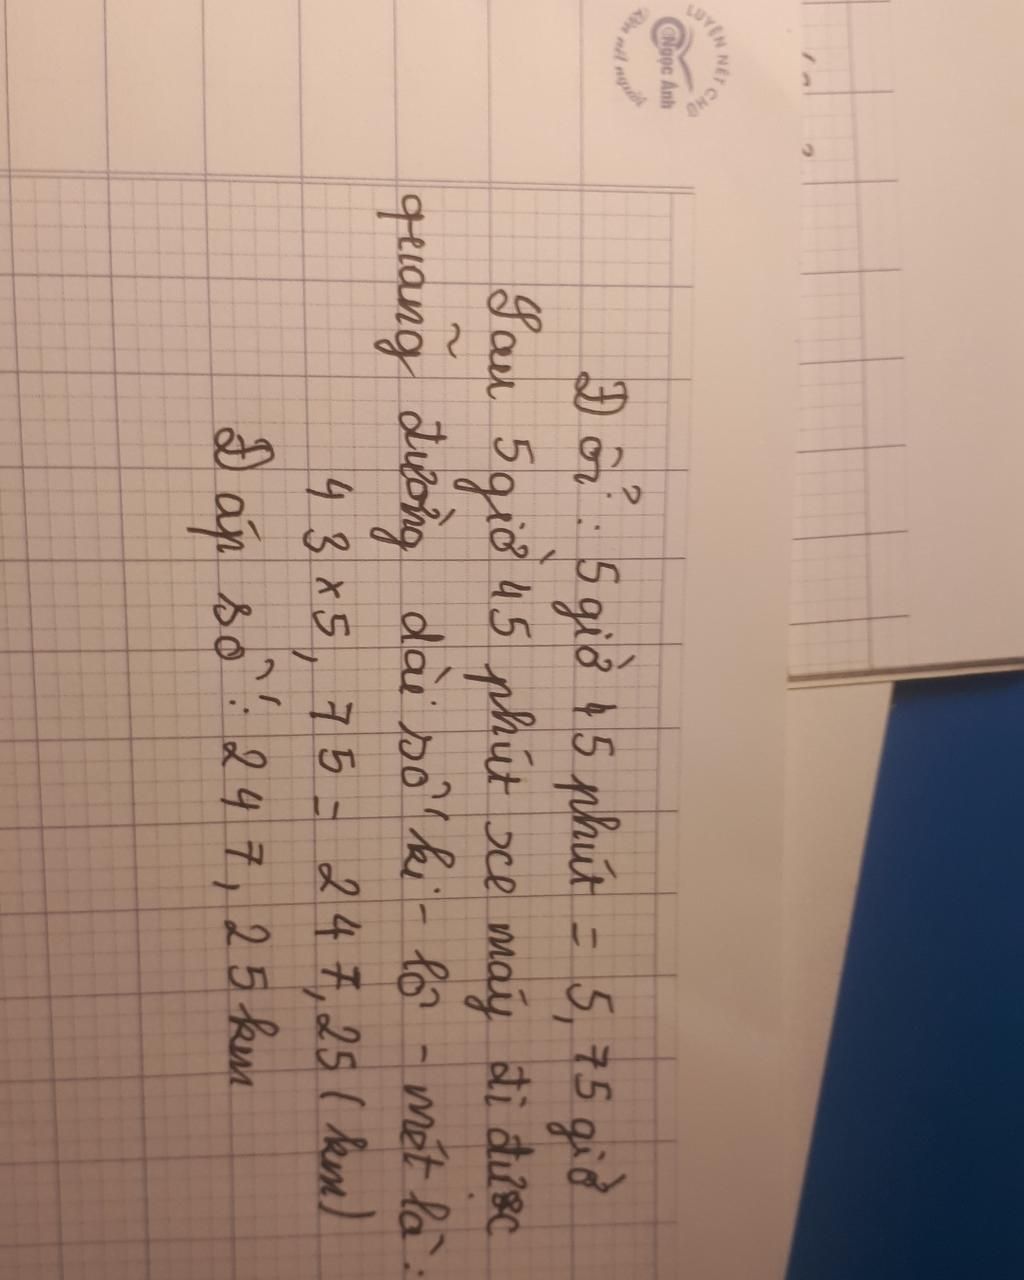 LUYỆN NÉT CHỮ
Ngọc Ánh
Rèn nết người
Đổi : 5giờ 45 phút = 5,75 giờ
Sau 5giờ 45 phút xe máy đi được
quãng đường dài số ki - lô - mét là :
43 x 5,75 = 247,25 ( km )
Đáp số : 247,25 km